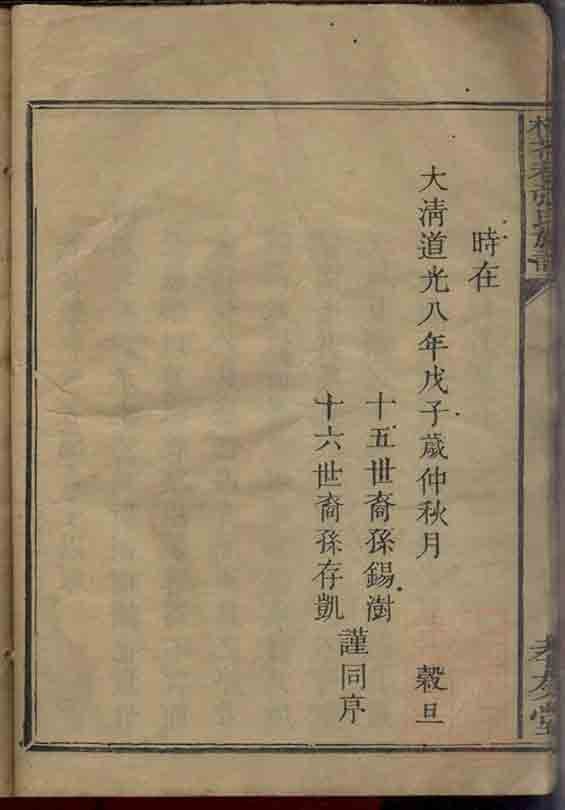 張氏族譜
孝友堂
時在
大淸道光八年戊子歲仲秋月 穀旦
十五世裔孫錫澍
十六世裔孫存凱
謹同序